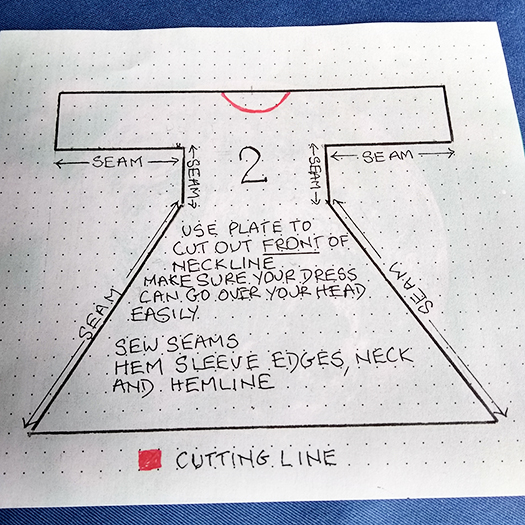 SEAM
SEAM
2
SEAM
SEAM
USE PLATE TO
CUT OUT FRONT OF
NECKLINE
MAKE SURE YOUR DRESS
CAN GO OVER YOUR HEAD
EASILY.
SEAM
SEAM
SEW SEAMS
HEM SLEEVE EDGES, NECK
AND HEMLINE
CUTTING LINE